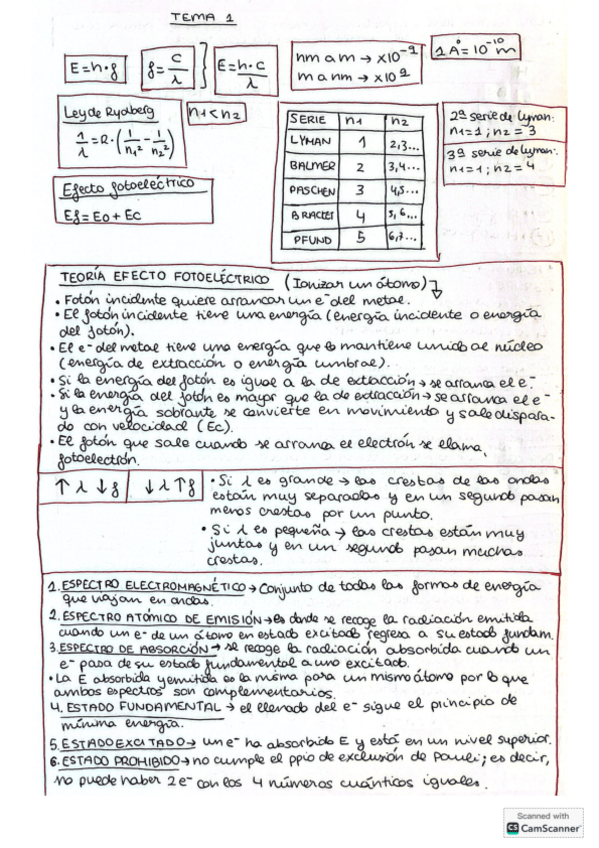 TEMA 1
E=h·f
f=c/λ } E=h·c/λ
nm a m → x10⁻⁹
m a nm → x10⁹
1 Å=10⁻¹⁰m
Ley de Rydberg
1/λ=R·(1/n₁²-1/n₂²)
n₁<n₂
Efecto fotoeléctrico
Ef=Eo+Ec
SERIE n₁ n₂
LYMAN 1 2,3...
BALMER 2 3,4...
PASCHEN 3 4,5...
BRACKET 4 5,6...
PFUND 5 6,7...
2ª serie de Lyman:
n₁=1; n₂=3
3ª serie de Lyman:
n₁=1; n₂=4
TEORÍA EFECTO FOTOELÉCTRICO (Ionizar un átomo)
• Fotón incidente quiere arrancar un e⁻ del metal.
• El fotón incidente tiene una energía (energía incidente o energía
del fotón).
• El e⁻ del metal tiene una energía que lo mantiene unido al núcleo
(energía de extracción o energía umbral).
• Si la energía del fotón es igual a la de extracción → se arranca el e⁻.
• Si la energía del fotón es mayor que la de extracción → se arranca el e⁻
y la energía sobrante se convierte en movimiento y sale dispara-
do con velocidad (Ec).
• El fotón que sale cuando se arranca el electrón se llama
fotoelectrón.
↑λ ↓f ↓λ ↑f
• Si λ es grande → las crestas de las ondas
están muy separadas y en un segundo pasan
menos crestas por un punto.
• Si λ es pequeña → las crestas están muy
juntas y en un segundo pasan muchas
crestas.
1. ESPECTRO ELECTROMAGNÉTICO → Conjunto de todas las formas de energía
que viajan en ondas.
2. ESPECTRO ATÓMICO DE EMISIÓN → es donde se recoge la radiación emitida
cuando un e⁻ de un átomo en estado excitado regresa a su estado fundam.
3. ESPECTRO DE ABSORCIÓN → se recoge la radiación absorbida cuando un
e⁻ pasa de su estado fundamental a uno excitado.
• La E absorbida y emitida es la misma para un mismo átomo por lo que
ambos espectros son complementarios.
4. ESTADO FUNDAMENTAL → el llenado del e⁻ sigue el principio de
mínima energía.
5. ESTADO EXCITADO → un e⁻ ha absorbido E y está en un nivel superior.
6. ESTADO PROHIBIDO → no cumple el ppio de exclusión de Pauli; es decir,
no puede haber 2 e⁻ con los 4 números cuánticos iguales.
Scanned with
CS CamScanner